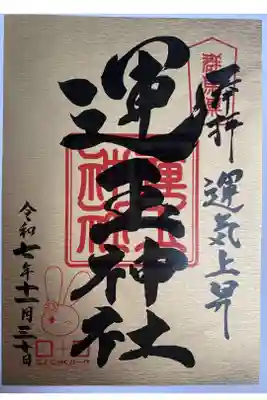 奉拝
運気上昇
運玉神社
令和七年十一月三十日
群馬県